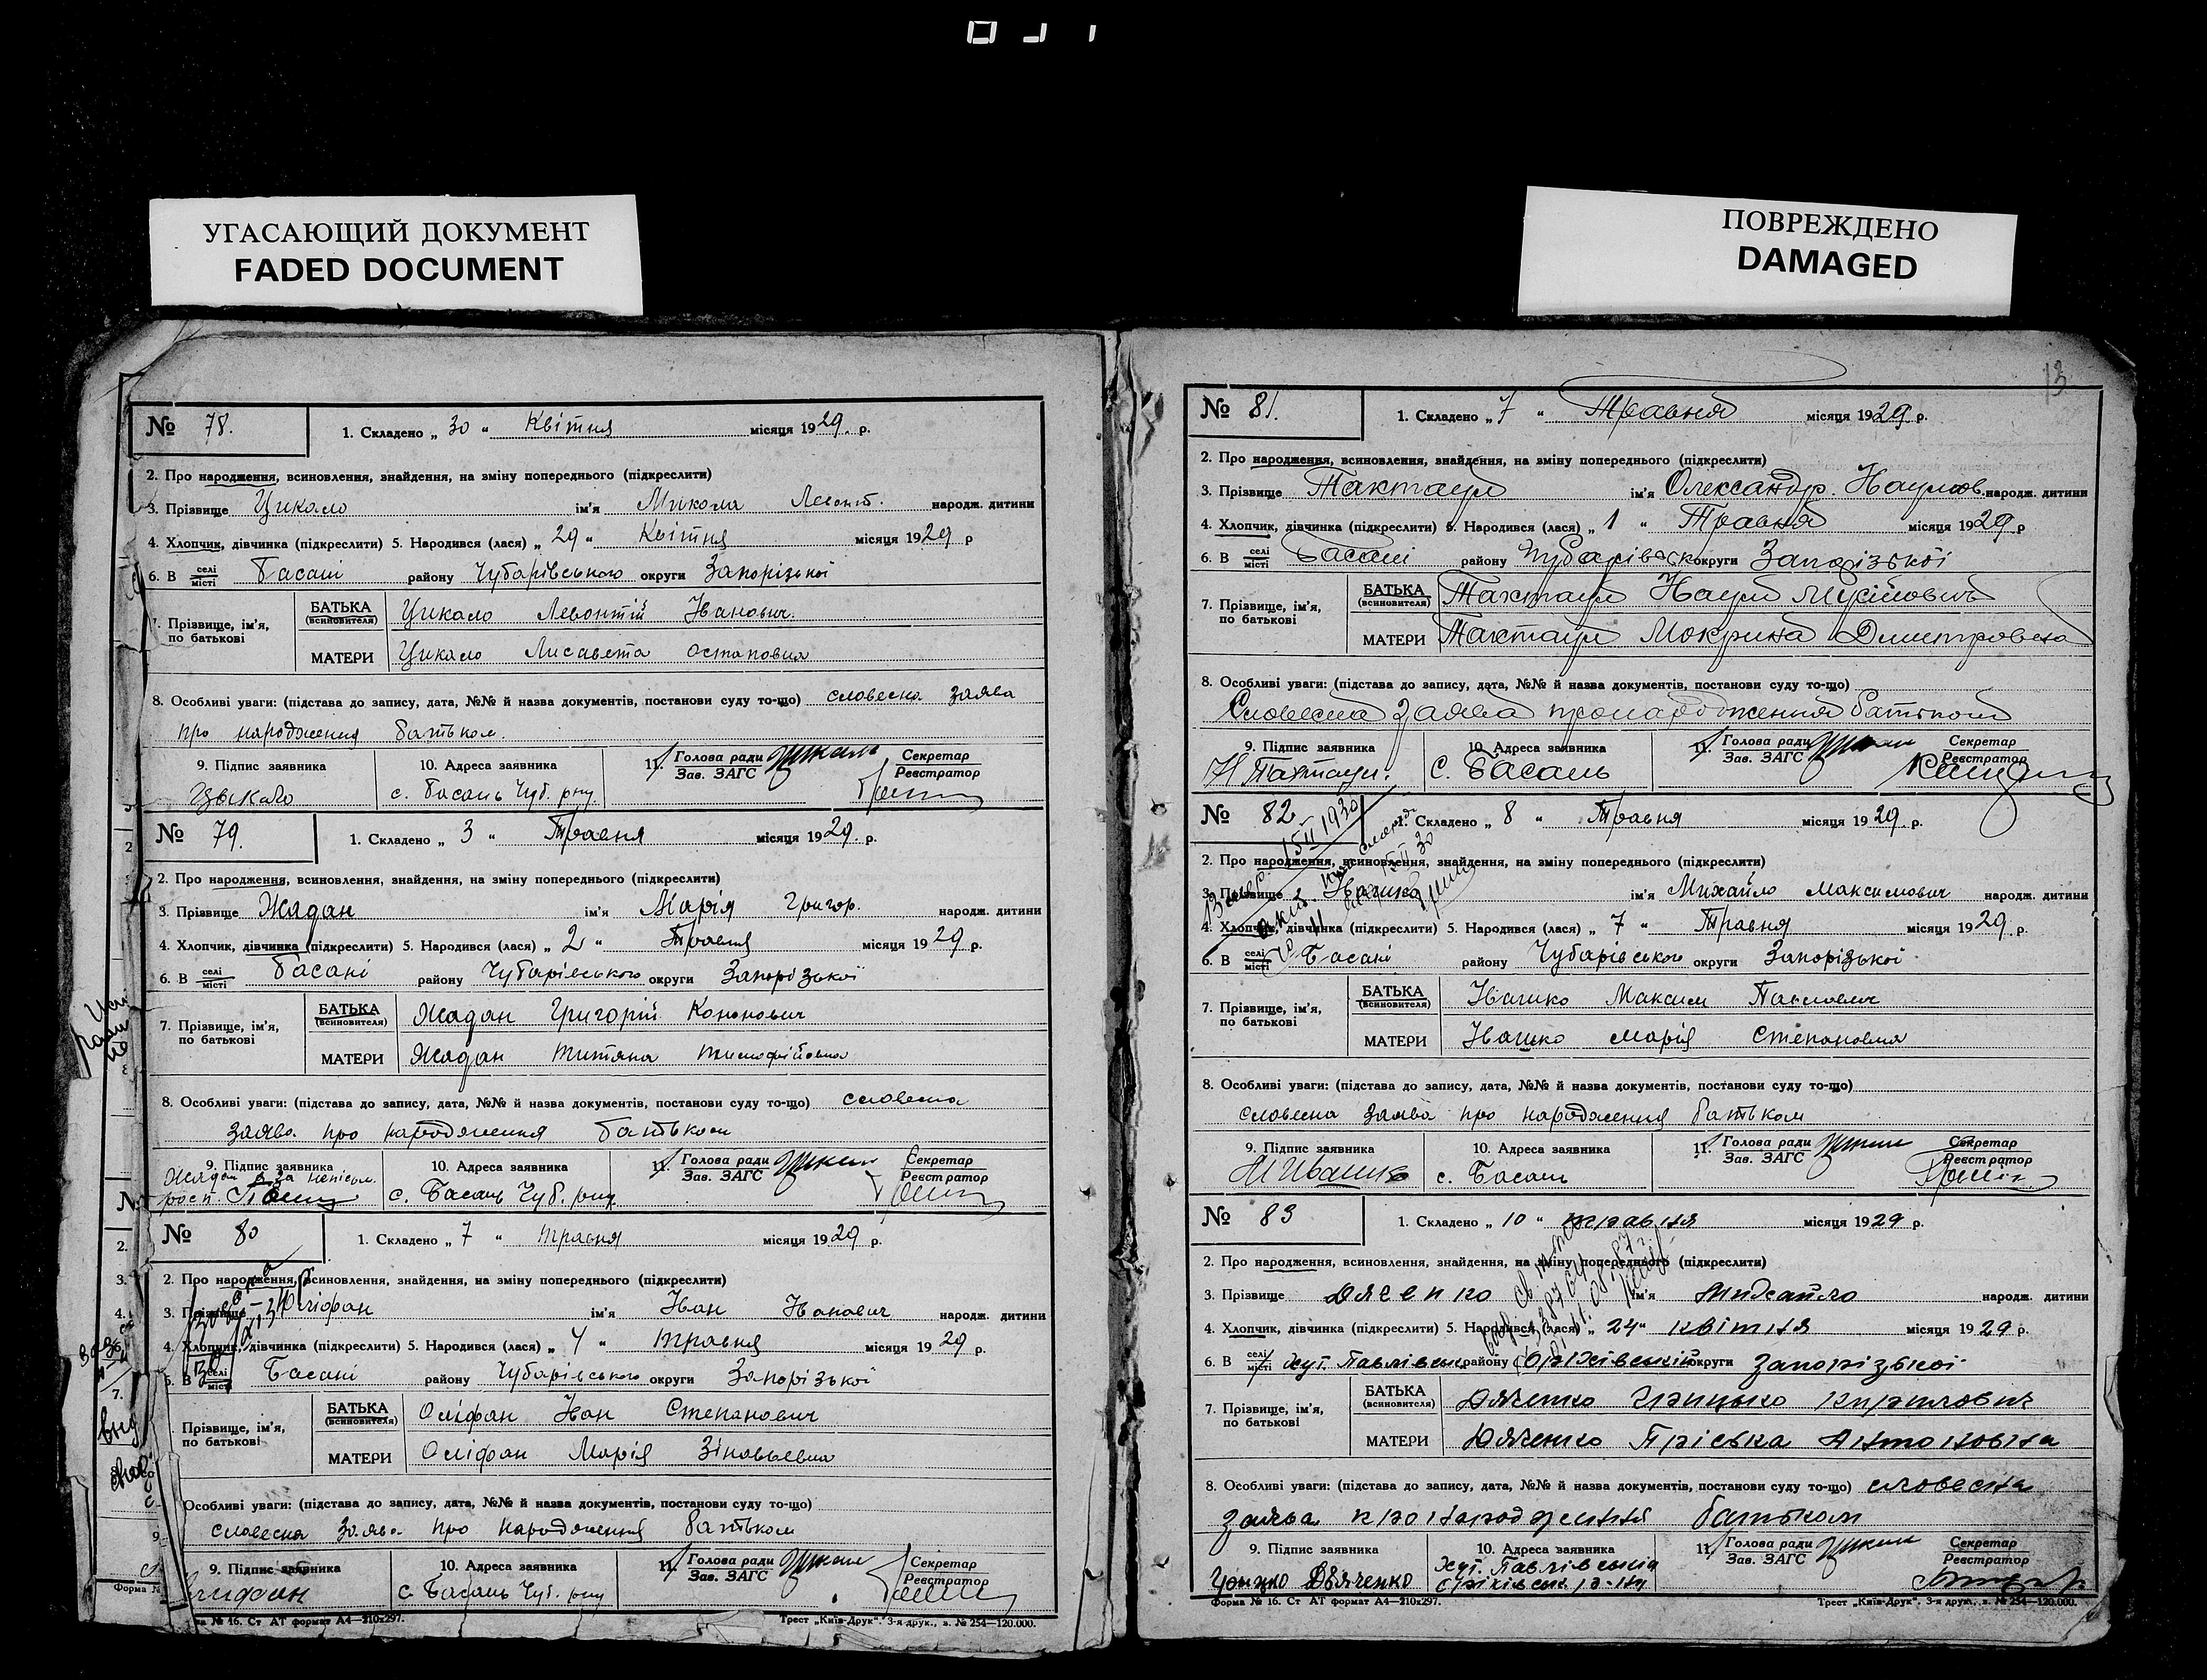 УГАСАЮЩИЙ ДОКУМЕНТ
FADED DOCUMENT
ПОВРЕЖДЕНО
DAMAGED
№ 78. 1. Складено „ 30 “ Квітня місяця 1929. р.
2. Про народження, всиновлення, знайдення, на зміну попереднього (підкреслити)
3. Прізвище Цикало ім'я Микола Левонт. народж. дитини
4. Хлопчик, дівчинка (підкреслити) 5. Народився (лася) „ 29 “ Квітня місяця 1929 р
6. В селі/місті Басані району Чубарівського округи Запорізької
7. Прізвище, ім'я, по батькові
БАТЬКА (всиновителя) Цикало Левонтій Іванович.
МАТЕРИ Цикало Лисавета Остаповна
8. Особливі уваги: (підстава до запису, дата, №№ й назва документів, постанови суду то-що) словесна заява
про народження батьком.
9. Підпис заявника 10. Адреса заявника 11. Голова ради Зав. ЗАГС Секретар Реєстратор
Цыкало с. Басань Чуб. р-ну.
№ 79. 1. Складено „ 3 “ Травня місяця 1929. р.
2. Про народження, всиновлення, знайдення, на зміну попереднього (підкреслити)
3. Прізвище Жадан ім'я Марія Григор. народж. дитини
4. Хлопчик, дівчинка (підкреслити) 5. Народився (лася) „ 2 “ Травня місяця 1929 р.
6. В селі/місті Басані району Чубарівського округи Запорізької
7. Прізвище, ім'я, по батькові
БАТЬКА (всиновителя) Жадан Григорій Кононович
МАТЕРИ Жадан Титяна Тимофійовна
8. Особливі уваги: (підстава до запису, дата, №№ й назва документів, постанови суду то-що) словесна
заява про народження батьком
9. Підпис заявника 10. Адреса заявника 11. Голова ради Зав. ЗАГС Секретар Реєстратор
Жадан а за неписьм. росп. с. Басань Чуб. р-ну
№ 80 1. Складено „ 7 “ травня місяця 1929 р.
2. Про народження, всиновлення, знайдення, на зміну попереднього (підкреслити)
3. Прізвище Оліфан ім'я Іван Іванович народж. дитини
4. Хлопчик, дівчинка (підкреслити) 5. Народився (лася) „ 4 “ травня місяця 1929 р.
6. В селі/місті Басані району Чубарівського округи Запорізької
Прізвище, ім'я, по батькові
БАТЬКА (всиновителя) Оліфан Іван Степанович
МАТЕРИ Оліфан Марія Зіновьевна
Особливі уваги: (підстава до запису, дата, №№ й назва документів, постанови суду то-що)
словесна заява про народження батьком
9. Підпис заявника 10. Адреса заявника 11. Голова ради Зав. ЗАГС Секретар Реєстратор
с Басань Чуб. р-ну
№ 16. Ст АТ формат А4—210x297. Трест „Київ-Друк“. 3-я друк., з. № 254—120.000.
13
№ 81. 1. Складено „ 7 “ Травня місяця 1929 р.
2. Про народження, всиновлення, знайдення, на зміну попереднього (підкреслити)
3. Прізвище Тахтаул ім'я Олександр. Наумов. народж. дитини
4. Хлопчик, дівчинка (підкреслити) 5. Народився (лася) „ 1 “ Травня місяця 1929 р
6. В селі/місті Басані району Чубарівськ округи Запорізької
7. Прізвище, ім'я, по батькові
БАТЬКА (всиновителя) Тахтаул Наум Мусійович
МАТЕРИ Тахтаул Мокрина Дмитровна
8. Особливі уваги: (підстава до запису, дата, №№ й назва документів, постанови суду то-що)
Словесна заява про народження батьком
9. Підпис заявника 10. Адреса заявника 11. Голова ради Зав. ЗАГС Секретар Реєстратор
Н Тахтаул. С. Басань
№ 82. 1. Складено „ 8 “ Травня місяця 1929 р.
15 II 1930
2. Про народження, всиновлення, знайдення, на зміну попереднього (підкреслити)
3. Прізвище Івашко ім'я Михайло Максимович народж. дитини
4. Хлопчик, дівчинка (підкреслити) 5. Народився (лася) „ 7 “ Травня місяця 1929 р.
6. В селі/місті Басані району Чубарівського округи Запорізької
7. Прізвище, ім'я, по батькові
БАТЬКА (всиновителя) Івашко Максим Павлович
МАТЕРИ Івашко Марія Степановна
8. Особливі уваги: (підстава до запису, дата, №№ й назва документів, постанови суду то-що)
словесна заява про народження батьком
9. Підпис заявника 10. Адреса заявника 11. Голова ради Зав. ЗАГС Секретар Реєстратор
М Ивашко с. Басань
№ 83 1. Складено „ 10 “ травня місяця 1929 р.
2. Про народження, всиновлення, знайдення, на зміну попереднього (підкреслити)
3. Прізвище Дяченко ім'я Михайло народж. дитини
4. Хлопчик, дівчинка (підкреслити) 5. Народився (лася) „ 24 “ квітня місяця 1929 р.
6. В селі/місті хут. Павлівськ району Оріхівський округи Запорізької
7. Прізвище, ім'я, по батькові
БАТЬКА (всиновителя) Дяченко Грицько Кирилович
МАТЕРИ Дяченко Пріська Антоновна
8. Особливі уваги: (підстава до запису, дата, №№ й назва документів, постанови суду то-що) словесна
заява про народження батьком
9. Підпис заявника 10. Адреса заявника 11. Голова ради Зав. ЗАГС Секретар Реєстратор
Грицко Дьяченко хут. Павлівський Оріхівськ. р-ну
Форма № 16. Ст АТ формат А4—210x297. Трест „Київ-Друк“. 3-я друк., з. № 254—120.000.